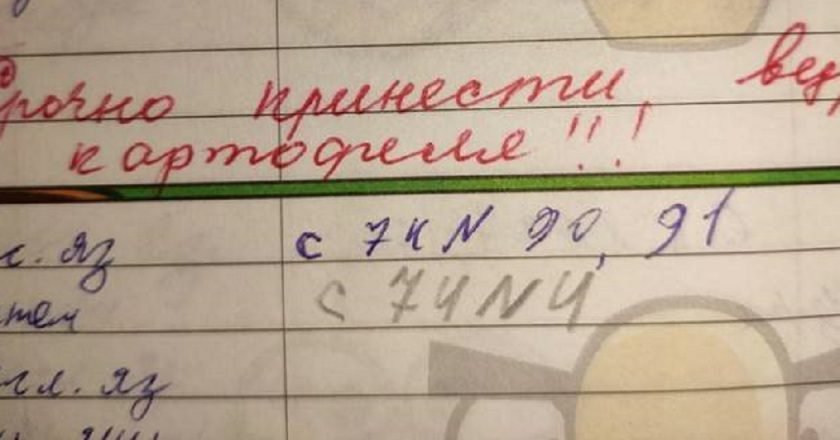 Срочно принести вед
картофеля!!!
с. яз с 74 N 90, 91
тем с 74 N 4
гл. яз